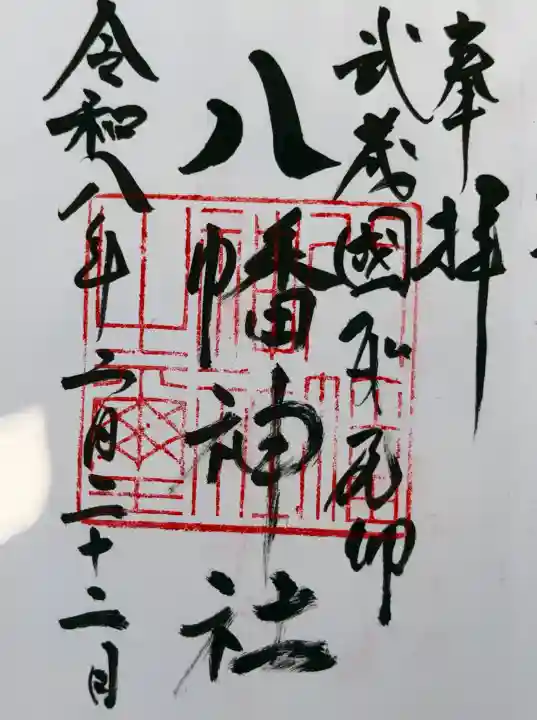 奉拝
武蔵國
八幡神社
令和八年二月二十二日